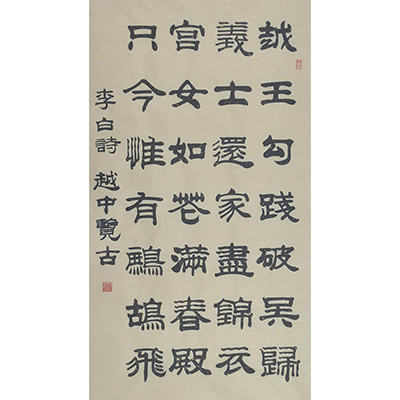 越王勾踐破吴歸
義士還家盡錦衣
宮女如花滿春殿
只今惟有鷓鴣飛
李白詩 越中覽古